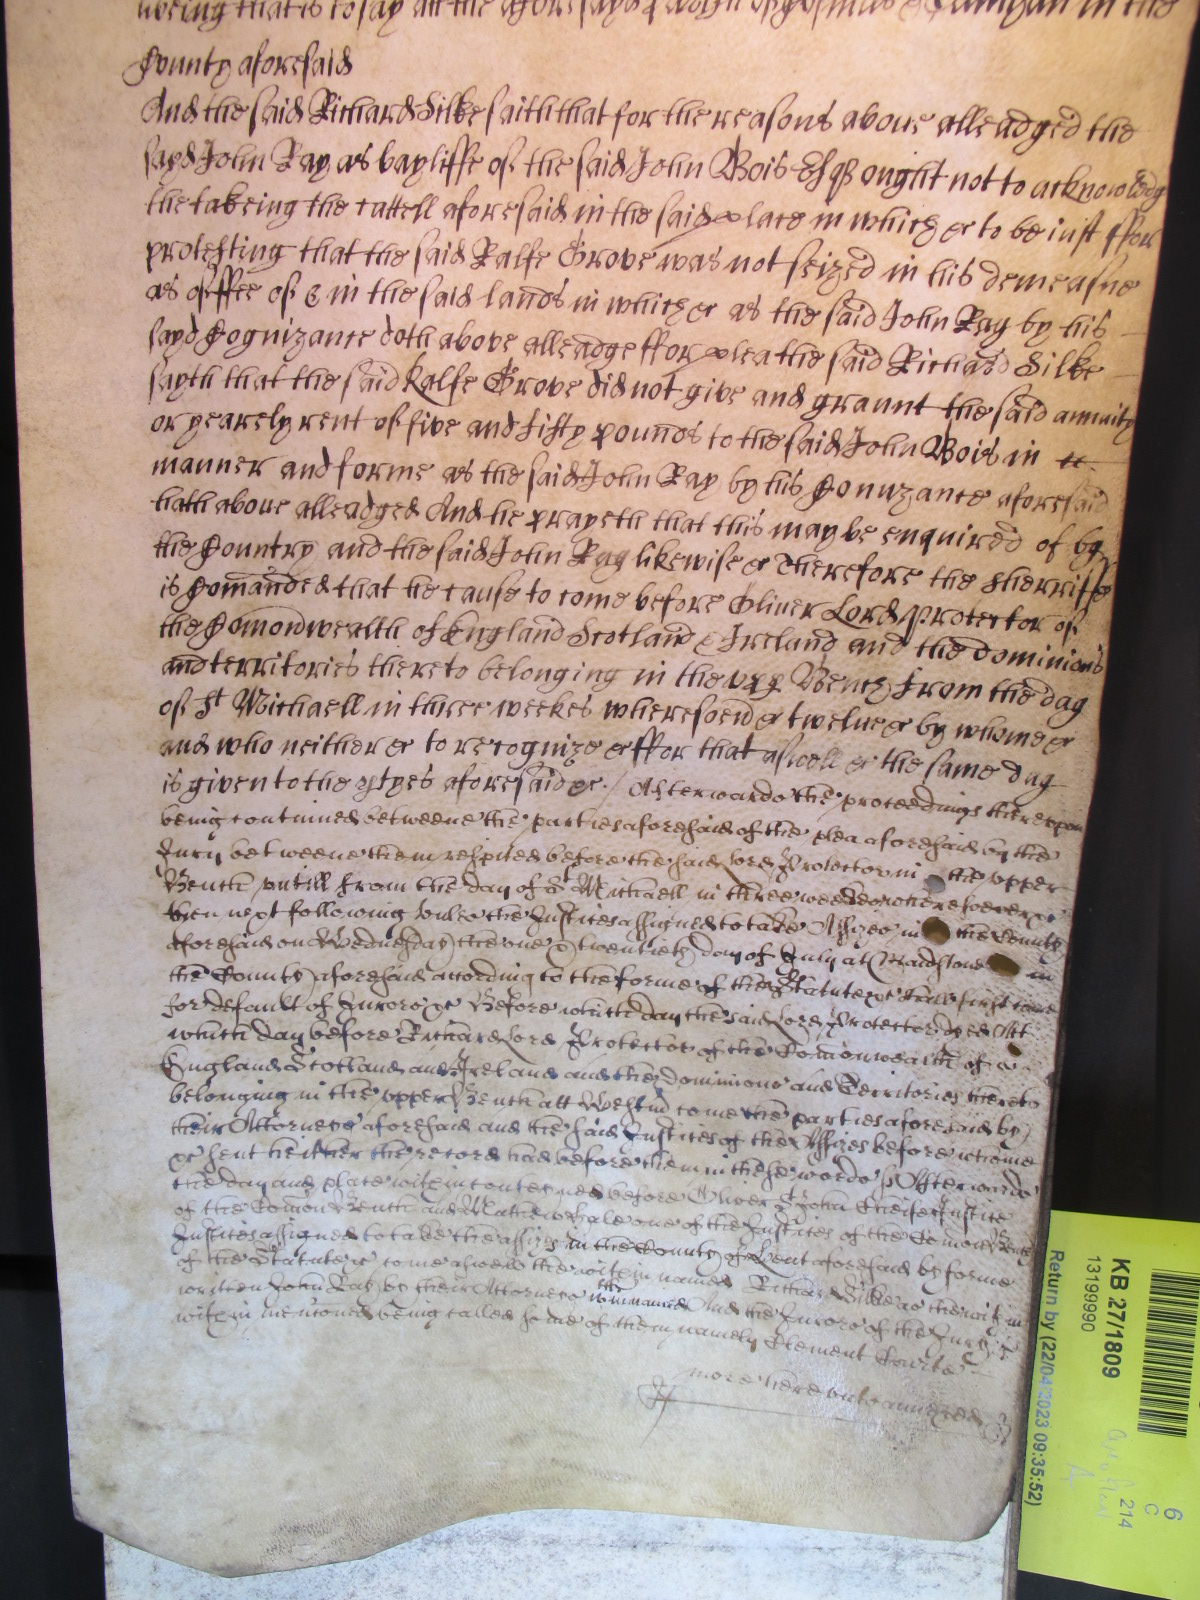 being that is to say att the aforesayd pish of Cosmus & Damyan in the
County aforesaid
And the said Richard Silke saith that for the reasons above alleadged the
sayd John Ray as bayliffe of the said John Bois Esqr ought not to acknowledg
the takeing the cattell aforesaid in the said place in which &c to be iust ffor
protesting that the said Ralfe Grove was not seized in his demeasne
as of ffee of & in the said lands in which &c as the said John Ray by his
sayd Cognizance doth above alleadge ffor plea the said Richard Silke
sayth that the said Ralfe Grove did not give and graunt the said annuity
or yearely rent of five and fifty pounds to the said John Bois in
manner and forme as the said John Ray by his Conuzance aforesaid
hath above alleadged And he prayeth that this may be enquired of by
the Country and the said John Ray likewise &c Therefore the Sherriffe
is Comanded that he cause to come before Oliver Lord Protector of
the Comonwealth of England Scotland & Ireland and the dominions
and territories thereto belonging in the upp Bench from the day
of St Michaell in three weekes wheresoever &c twelve &c by whome &c
and who neither &c to recognize &c ffor that aswell &c the same day
is given to the ptyes aforesaid &c. / Afterwards the proceedings thereupon
being continued betweene the parties aforesaid of the plea aforesaid by the
Jury betweene them respited before the said Lord Protector in the upper
Bench untill from the day of St Michaell in three weekes wheresoever &c
then next following unles the Justices assigned to take Assizes in the County
aforesaid on Wednesday the one & twentieth day of July at Maidstone in
the County aforesaid according to the forme of the Statute &c shall first come
for default of Jurors &c Before which day the said Lord Protector dyed Att
which day before Richard Lord Protector of the Comonwealth of
England Scotland and Ireland and the Dominions and Territories thereto
belonging in the upper Bench att Westm come the parties aforesaid by
their Attorneys aforesaid and the said Justices of the Assizes before whome
&c sent hether their record had before them in these words ss Afterwards
the day and place within conteyned before Oliver St John Cheife Justice
of the Comon Bench and Mathew Hale one of the Justices of the Comon Bench
Justices assigned to take the assizes in the County of Kent aforesaid by forme
of the Statute &c come aswell the within named Richard Silke as the within
written John Ray by their Attorneys the within named And the Jurors of the Jury
within mencioned being called some of them namely Clement Courte
more hereunto annexed
KB 27/1809
13199990
Return by (22/04/2023 09:35:52)
6
C
214